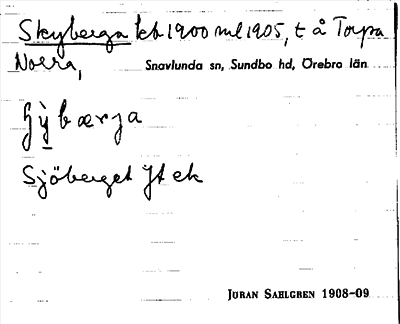 Skyberga kb 1900 ml 1905, t å Torpa
Norra,
Snavlunda sn, Sundbo hd, Örebro län
Sjöberget Jt ek
JÖRAN SAHLGREN 1908-09